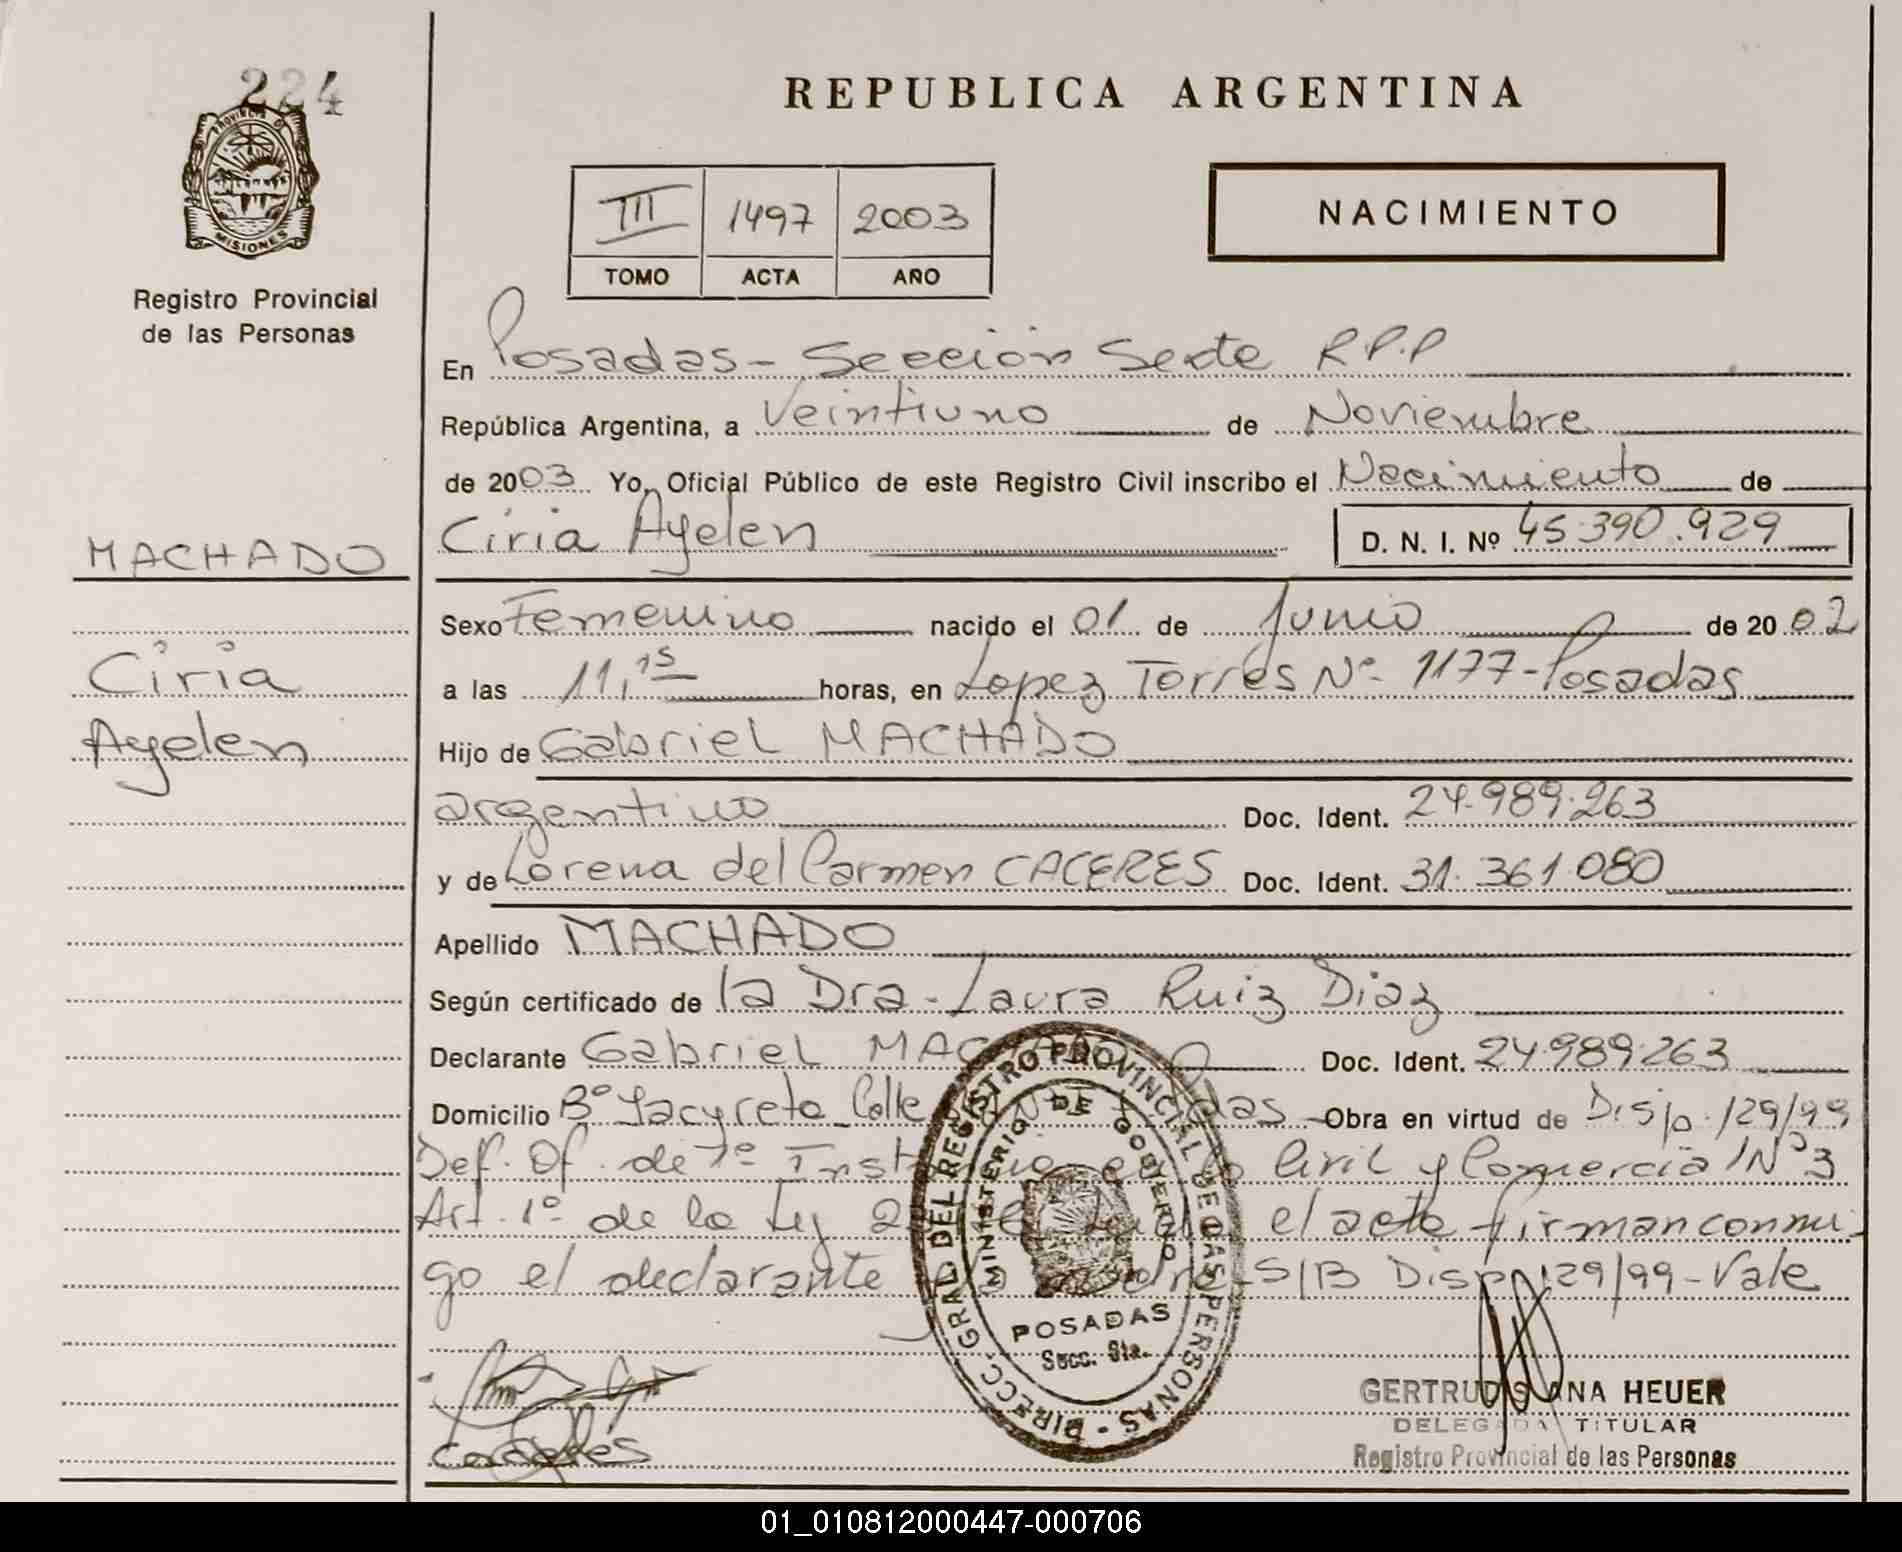 224
PROVINCIA DE
MISIONES
Registro Provincial
de las Personas
MACHADO
Ciria
Ayelen
REPUBLICA ARGENTINA
III 1497 2003
TOMO ACTA AÑO
NACIMIENTO
En Posadas - Sección Sexta R.P.P
República Argentina, a Veintiuno de Noviembre
de 2003 Yo, Oficial Público de este Registro Civil inscribo el Nacimiento de
Ciria Ayelen D. N. I. Nº 45.390.929
Sexo Femenino nacido el 01 de Junio de 2002
a las 11,15 horas, en Lopez Torres Nº 1177-Posadas
Hijo de Gabriel MACHADO
argentino Doc. Ident. 24.989.263
y de Lorena del Carmen CACERES Doc. Ident. 31.361.080
Apellido MACHADO
Según certificado de la Dra. Laura Ruiz Diaz
Declarante Gabriel MACHADO Doc. Ident. 24.989.263
Domicilio Bº Yacyreta Calle Obra en virtud de Disp. 129/99
Def. Of. de 1º Inst en lo Civil y Comercial Nº3
Art. 1º de la Ley el acta firman conmi
go el declarante S/B Disp 129/99-Vale
DIRECC. GRAD DEL REGISTRO PROVINCIAL DE LAS PERSONAS
MINISTERIO DE GOBIERNO
POSADAS
Secc. 6ta.
caceres
GERTRUDIS ANA HEUER
DELEGADA TITULAR
Registro Provincial de las Personas
01_010812000447-000706